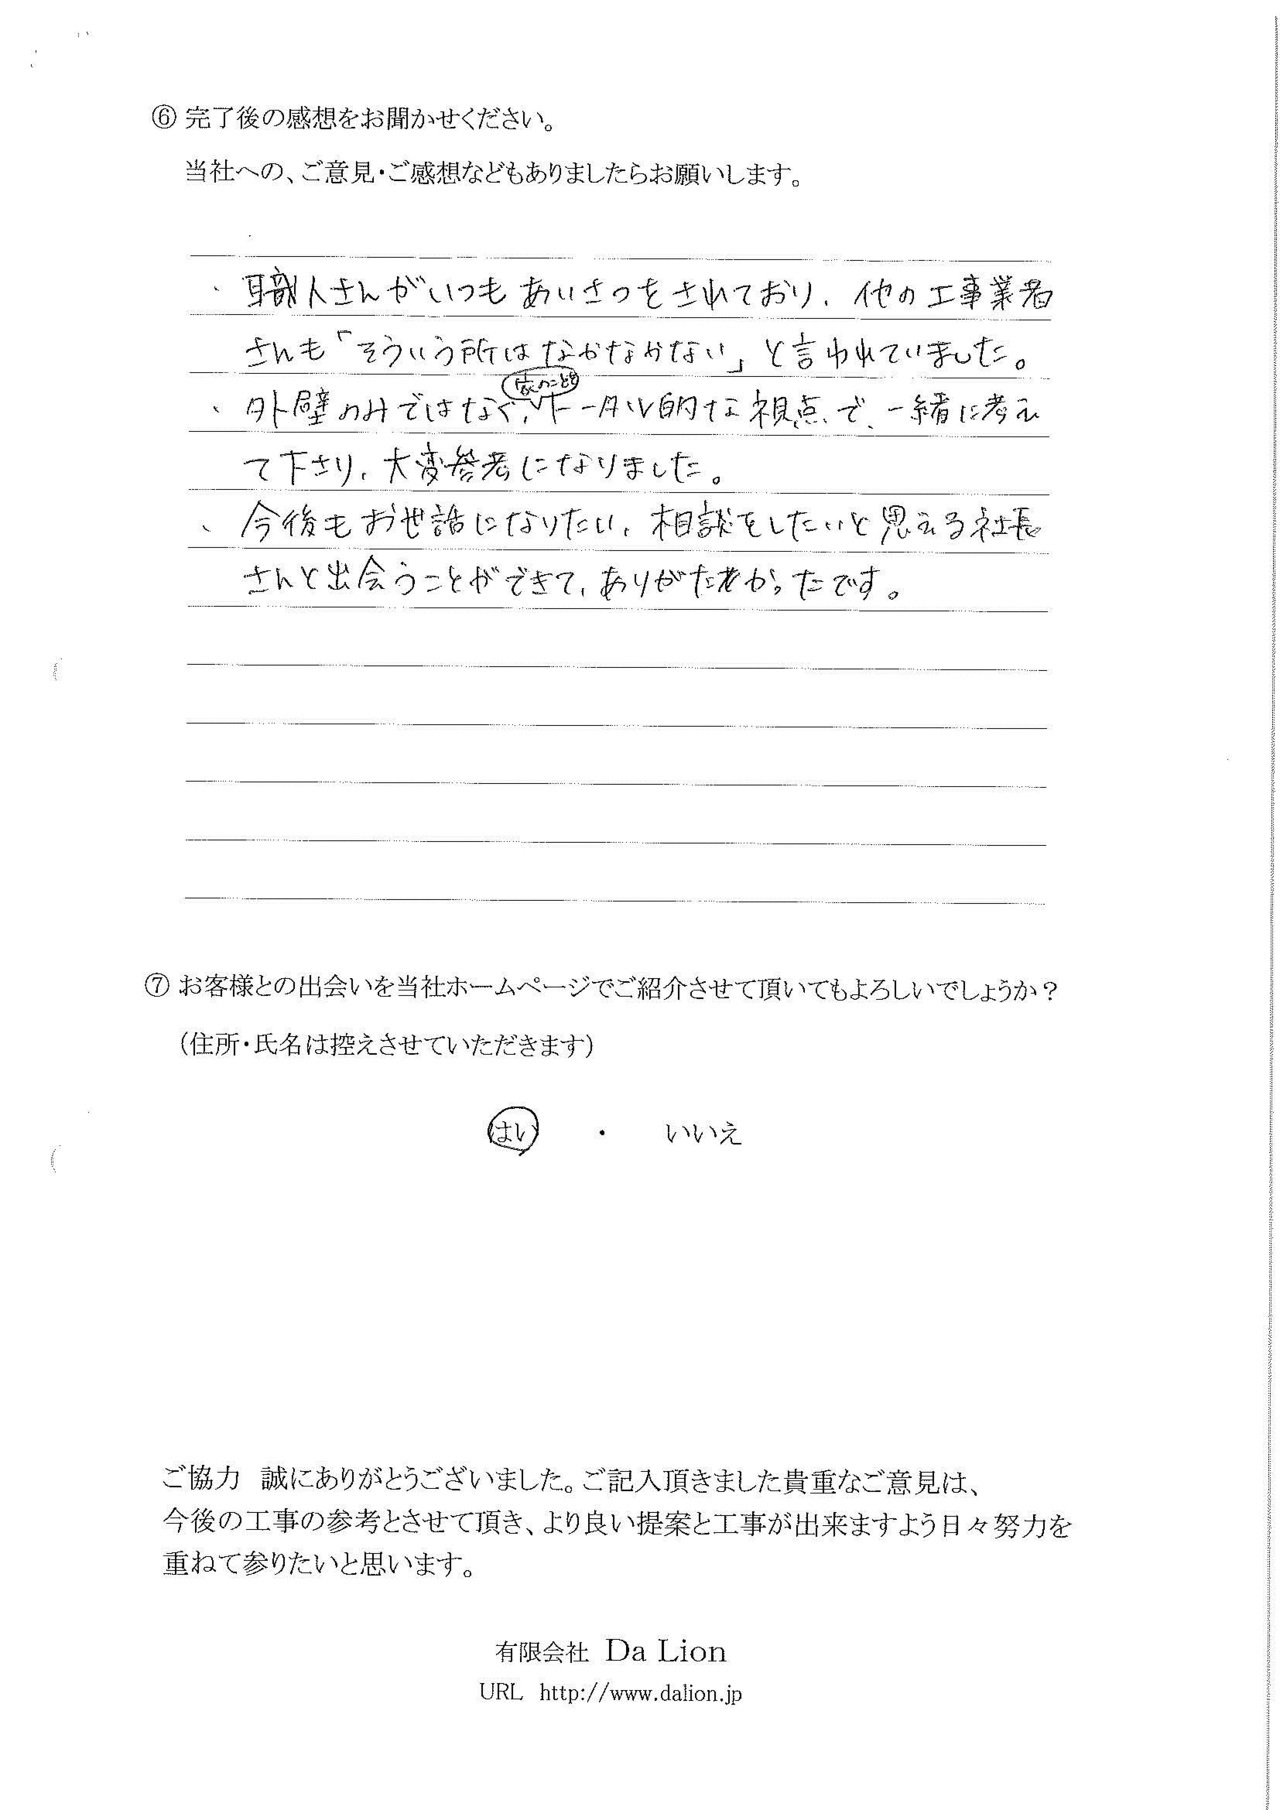 ⑥ 完了後の感想をお聞かせください。
当社への、ご意見・ご感想などもありましたらお願いします。
・職人さんがいつもあいさつをされており、他の工事業者
さんも「そういう所はなかなかない」と言われていました。
・外壁のみではなく、家のことをトータル的な視点で、一緒に考え
て下さり、大変参考になりました。
・今後もお世話になりたい、相談をしたいと思える社長
さんと出会うことができて、ありがたかったです。
⑦ お客様との出会いを当社ホームページでご紹介させて頂いてもよろしいでしょうか？
（住所・氏名は控えさせていただきます）
はい ・ いいえ
ご協力 誠にありがとうございました。ご記入頂きました貴重なご意見は、
今後の工事の参考とさせて頂き、より良い提案と工事が出来ますよう日々努力を
重ねて参りたいと思います。
有限会社 Da Lion
URL http://www.dalion.jp